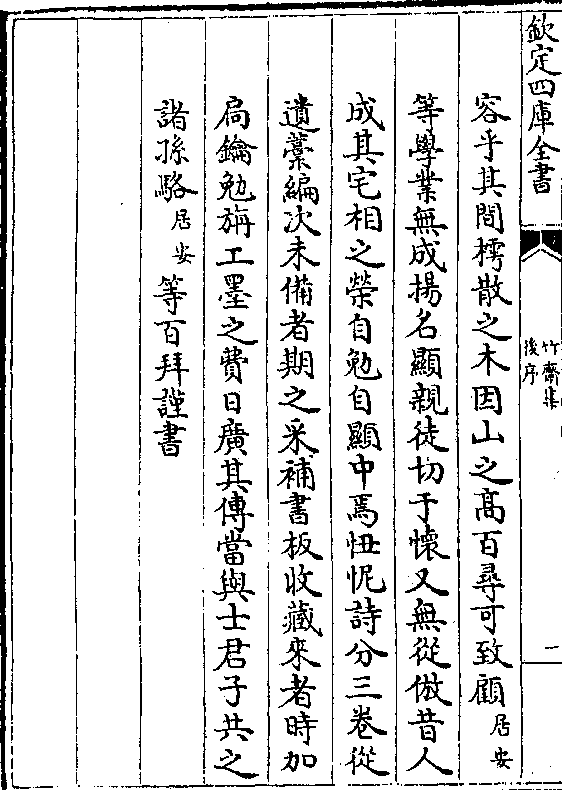 欽定四庫全書
竹齋集
後序
一
容乎其間樗散之木因山之髙百尋可致顧居安
等學業無成揚名顯親徒切于懷又無從倣昔人
成其宅相之榮自勉自顯中焉忸怩詩分三卷從
遺藁編次未備者期之采補書板收藏來者時加
扃鑰勉旃工墨之費日廣其傳當與士君子共之
諸孫駱居安等百拜謹書